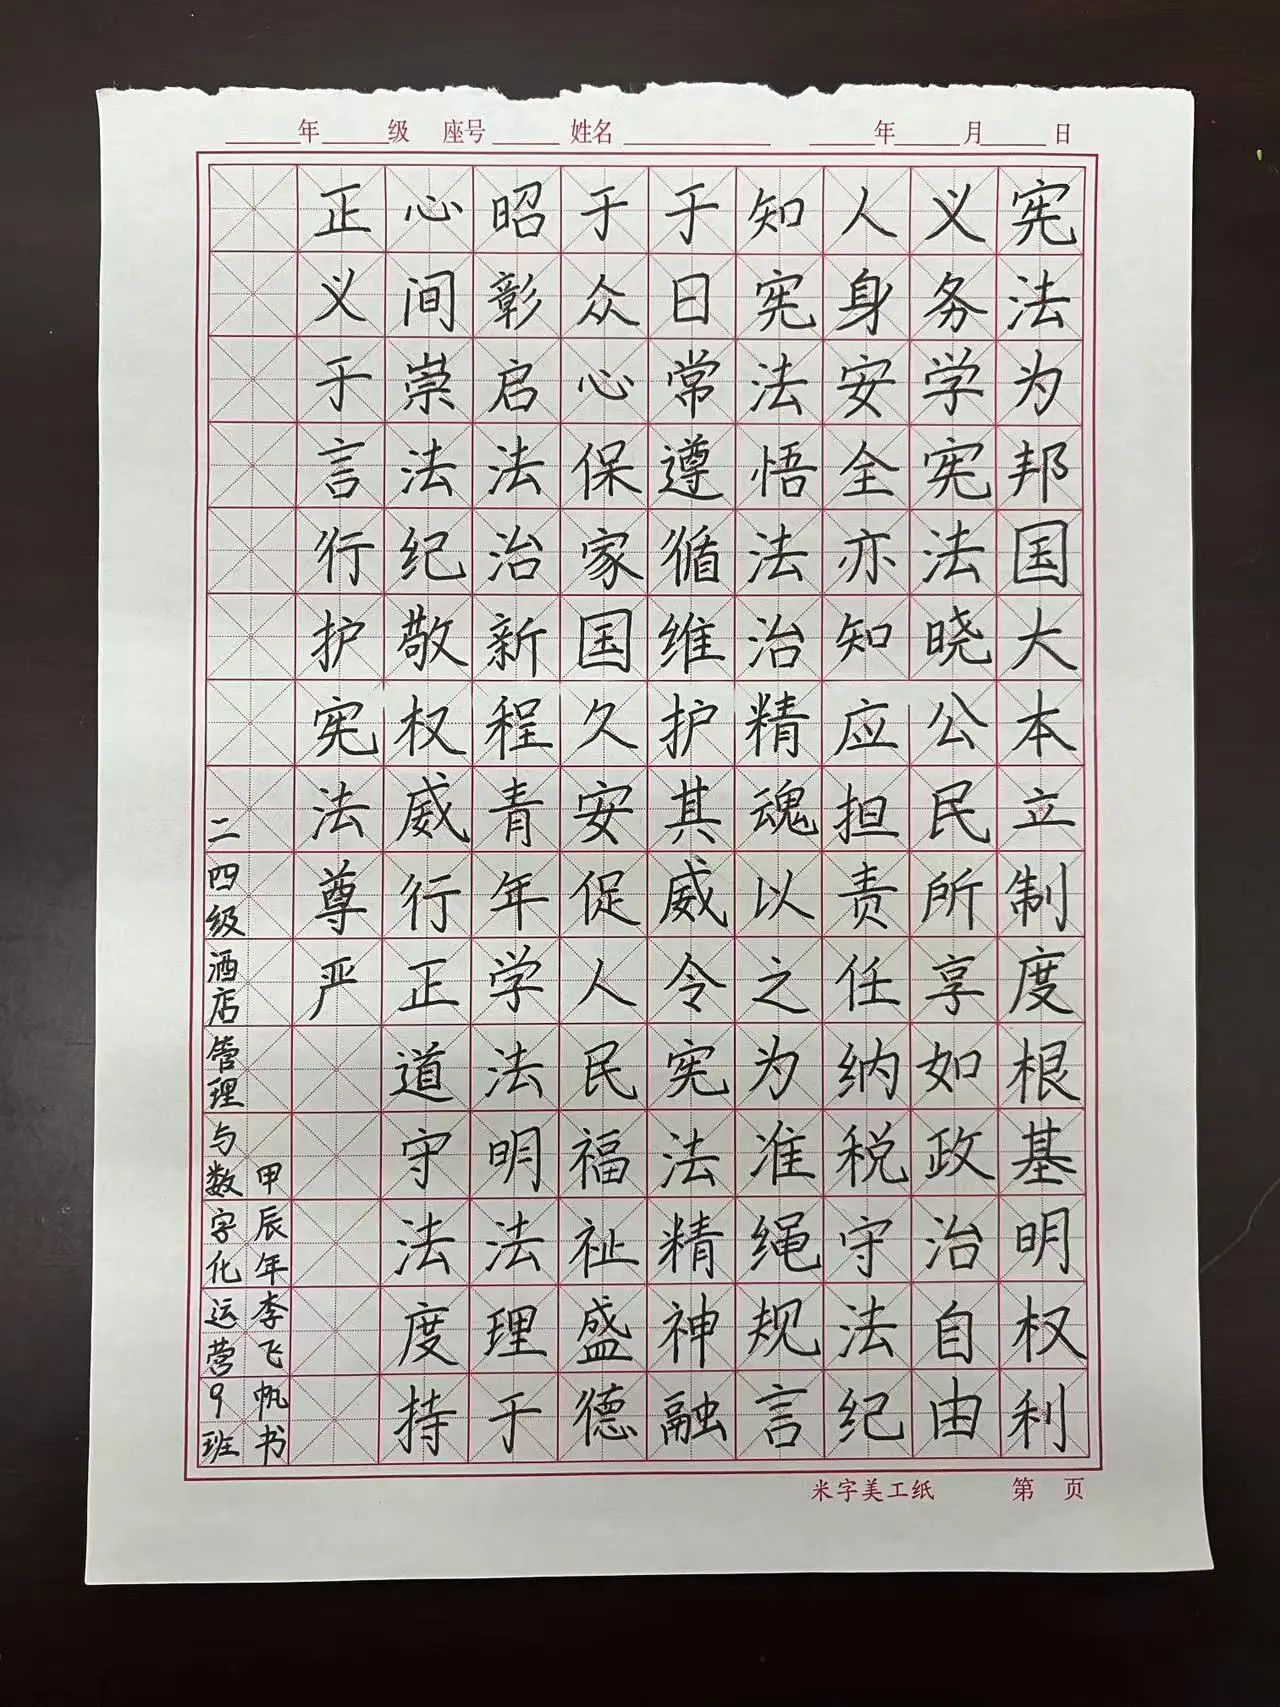 年 级 座号 姓名 年 月 日
宪法为邦国大本立制度根基明权利
义务学宪法晓公民所享如政治自由
人身安全亦知应担责任纳税守法纪
知宪法悟法治精魂以之为准绳规言
于日常遵循维护其威令宪法精神融
于众心保家国久安促人民福祉盛德
昭彰启法治新程青年学法明法理于
心间崇法纪敬权威行正道守法度持
正义于言行护宪法尊严
甲辰年李飞帆书
二四级酒店管理与数字化运营9班
米字美工纸 第 页